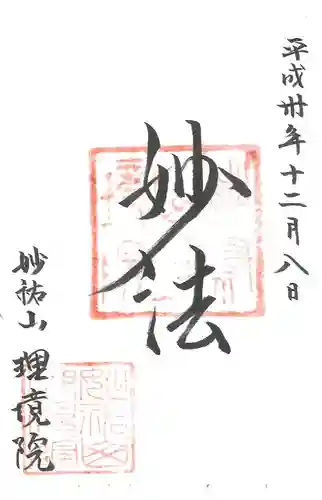 平成卅年十二月八日
妙法
妙祐山
理境院